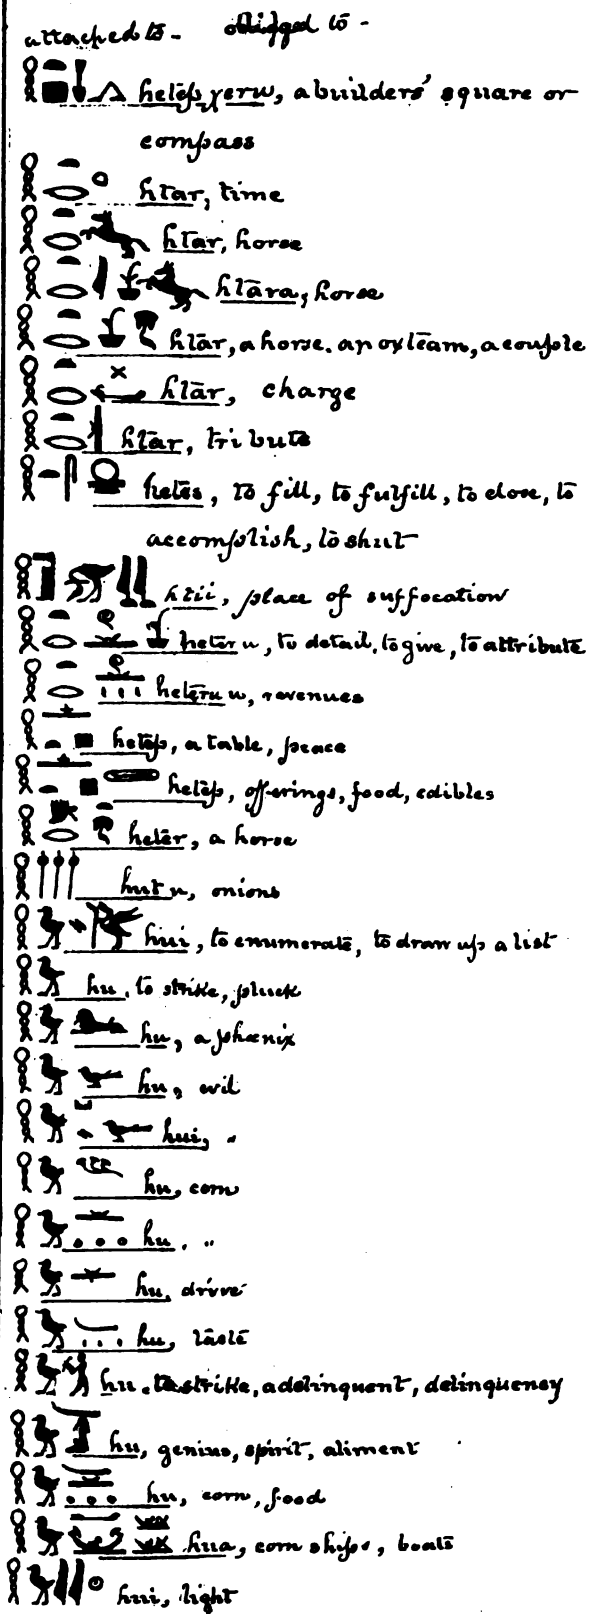 attached to - obliged to -
hetep χeru, a builders' square or
compass
htar, time
htar, horse
htāra, horse
htār, a horse, an ox team, a couple
htār, charge
htar, tribute
hetes, to fill, to fulfill, to close, to
accomplish, to shut
htii, place of suffocation
heteru, to detail, to give, to attribute
heteruu, revenues
hetep, a table, peace
hetep, offerings, food, edibles
heter, a horse
hutu, onions
hui, to enumerate, to draw up a list
hu, to strike, pluck
hu, a phœnix
hu, evil
hui, "
hu, corn
hu, "
hu, drive
hu, taste
hu, to strike, a delinquent, delinquency
hu, genius, spirit, aliment
hu, corn, food
hua, corn ships, boats
hui, light